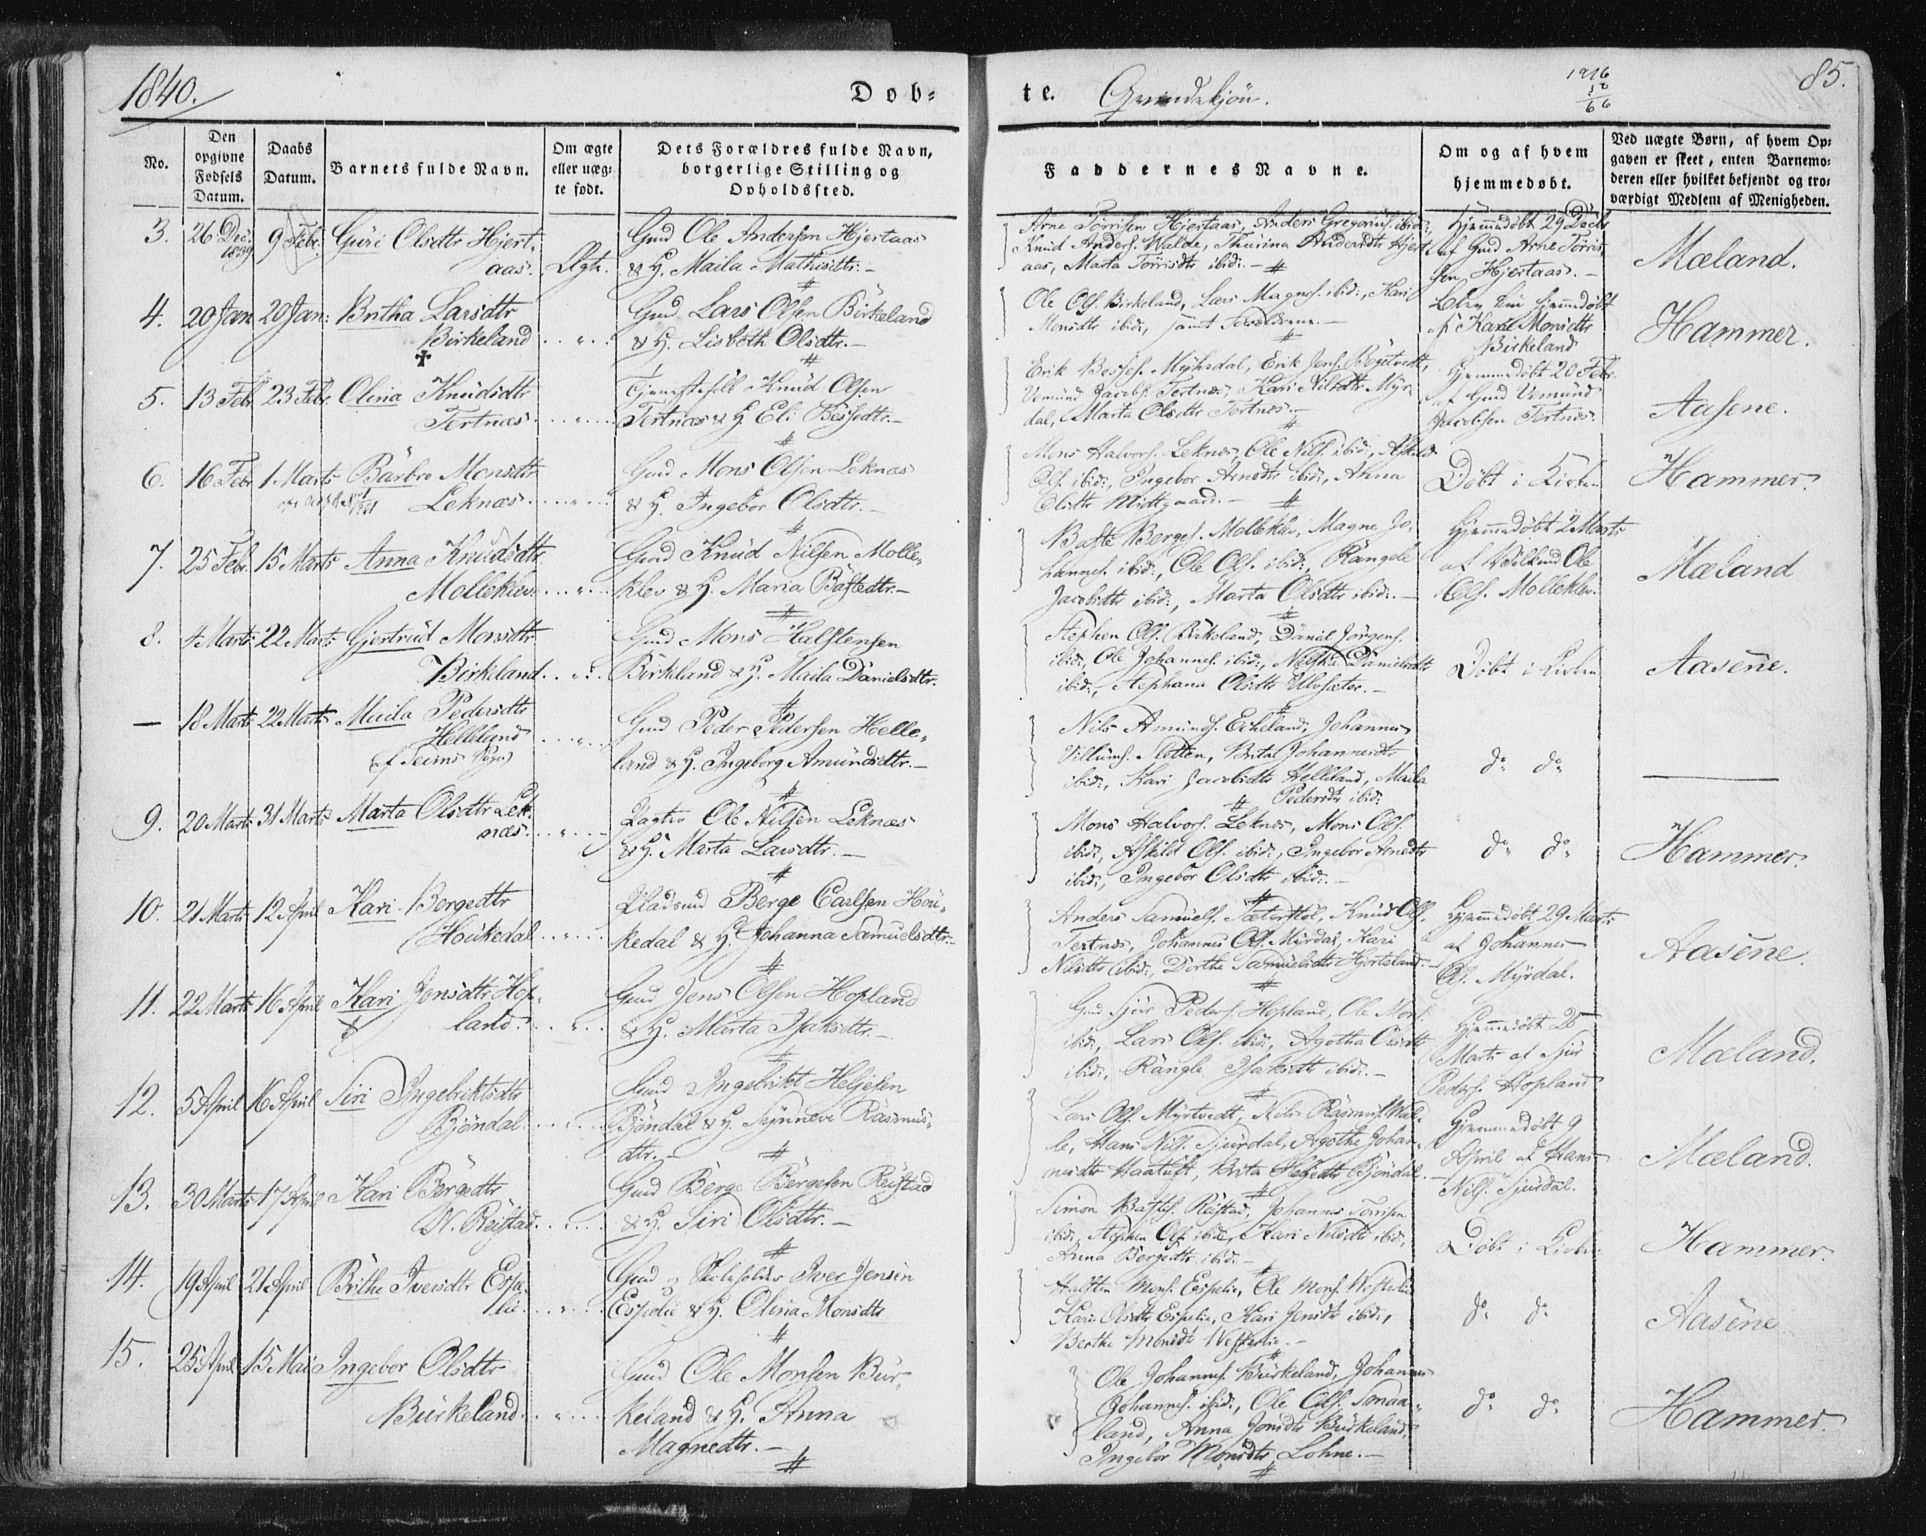 1840.
Dob-
te.
Qvindekjön.
1916
50
66
85.
No.
Den opgivne Fødsels Datum.
Daabs Datum.
Barnets fulde Navn.
Om ægte eller uæg-
te født.
Dets Forældres fulde Navn,
borgerlige Stilling og
Opholdssted.
Faddernes Navne.
Om og af hvem
hjemmedøbt.
Ved uægte Børn, af hvem Op-
gaven er skeet, enten Barnemo-
deren eller hvilket bekjendt og tro-
værdigt Medlem af Menigheden.
3. 26 Dec. 1839 9 Febr. Guri Olsdtr Hjert-
aas. Ægte.
Gmd Ole Andersen Hjertaas
& H. Maila Mathisdtr. —
Arne Torrisen Hjertaas, Anders Gregorius ibid:,
Knud Anders. Walde, Thurina Andersdtr Hjert-
aas, Marta Torrisdtr ibid: —
Hjemmedøbt 29 Decbr
af Gmd Arne Torris-
sen Hjertaas. —
Mæland.
4. 20 Jan: 20 Jan: Britha Larsdtr
Birkeland
Gmd Lars Olsen Birkeland
& H. Lisbeth Olsdtr. —
Ole Ols. Birkeland, Lars Magnes. ibid:, Kari
Monsdtr ibid:, samt Forældrene. —
Blev kun hjemmedøbt
af Kari Monsdtr
Birkeland
Hammer.
5. 13 Febr. 23 Febr. Olina Knudsdtr
Tertnæs.
Tjenestefolk Knud Olsen
Tertnæs & H. Eli Bessedtr. —
Erik Besses. Myhrdal, Erik Jens.
Vemund Jacobs. Tertnæs, Kari Nilsdtr Myr-
dal, Marta Olsdtr Tertnæs. —
Hjemmedøbt 20 Febr.
af Gmd Vemund
Jacobsen Tertnæs.
Aasene.
6. 16 Febr. 1 Marts Barbro Monsdtr
Leknæs.
Gmd Mons Olsen Leknæs
& H. Ingebor Olsdtr. —
Mons Halvors. Leknæs, Ole Nils. ibid:, Askild
Ols. ibid:, Ingebor Arnesdtr ibid:, Anna
Olsdtr Midtgaard. —
Døbt i Kirken
Hammer.
7. 25 Febr. 15 Marts Anna Knudsdtr
Molleklev.
Gmd Knud Nilsen Molle-
klev & H. Maria Bastedtr. —
Baste Berges. Molleklev, Magne Jo-
hannes. ibid:, Ole Ols. ibid:, Rangele
Jacobsdtr ibid:, Marta Olsdtr ibid: —
Hjemmedøbt 2 Marts
af Ole
Ols. Molleklev.
Mæland
8. 4 Marts 22 Marts Gjertrud Monsdtr
Birkland.
Gmd Mons Halstensen
Birkland & H. Maila Danielsdtr.
Stephen Ols. Birkeland, Daniel Jörgens.
ibid:, Ole Johannes. ibid:, Danielsdtr
ibid:, Stephana Olsdtr Ulvsæter. —
Døbt i Kirken
Aasene.
— 18 Marts 22 Marts Maila Pedersdtr
Helleland
(af Seims Sogn)
Gmd Peder Pedersen Helle-
land & H. Ingeborg Amundsdtr. —
Nils Amunds. Eikeland, Johannes
Villums. Sletten, Brita Johannesdtr
ibid:, Kari Jacobsdtr Helleland, Maila
Pedersdtr ibid:
do do
9. 20 Marts 31 Marts Marta Olsdtr Lek-
næs.
Ole Nilsen Leknæs
& H. Marta Larsdtr. —
Mons Halvors. Leknæs, Mons Ols.
ibid:, Askild Ols. ibid:, Ingebor Arnesdtr
ibid:, Ingebor Olsdtr ibid: —
do do
Hammer.
10. 21 Marts 12 April Kari Bergedtr
Houkedal
Pladsmd Berge Carlsen Hou-
kedal & H. Johanna Samuelsdtr. —
Anders Samuels. Sæterstöl, Knud Ols.
Tertnæs, Johannes Ols. Myrdal, Kari
Nilsdtr ibid:, Dorthe Samuelsdtr Hjorteland. —
Hjemmedøbt 29 Marts
af Johannes
Ols. Myrdal.
Aasene.
11. 22 Marts 16 April Kari Jensdtr Hop-
land.
Gmd Jens Olsen Hopland
& H. Marta Isaksdtr. —
Gmd Sjur Peders. Hopland, Ole Mons.
ibid:, Lars Ols. ibid:, Agotha Olsdtr
ibid:, Rangle Isaksdtr ibid: —
Hjemmedøbt 26
Marts af Sjur
Peders. Hopland
Mæland.
12. 5 April 16 April Siri Ingebriktsdtr
Bjöndal.
Gmd Ingebrikt Helgesen
Bjöndal & H. Synneve Rasmus-
dtr. —
Lars Ols. Myrtvedt, Nils Rasmus. Wal-
le, Hans Nils. Sjurdal, Agothe Johan-
nesdtr Haatuft, Brita Helgedtr Bjöndal. —
Hjemmedøbt 9
April af Hans
Nils. Sjurdal.
Mæland.
13. 30 Marts 17 April Kari Bergedtr
N. Reistad.
Gmd Berge Bergesen Reistad
& H. Siri Olsdtr. —
Simon Bastes. Reistad, Johannes Torrisen
ibid:, Stephen Ols. ibid:, Kari Nilsdtr ibid:,
Anna Bergedtr ibid: —
Døbt i Kirken.
Hammer.
14. 19 April 21 April Brithe Iversdtr Espe-
lie.
Gmd og Skoleholder Iver Jensen
Espelie & H. Olina Monsdtr
Halsten Mons. Espelie, Ole Mons. Westrelie
Kari Olsdtr Espelie, Kari Jensdtr ibid:,
Berthe Monsdtr Westrelie. —
do do
Aasene
15. 25 April 15 Mai Ingebor Olsdtr
Burkeland.
Gmd Ole Monsen Bur-
keland & H. Anna
Magnedtr. —
Ole Johannes. Burkeland, Johannes
Johannes. ibid:, Ole Ols.
land, Anna Jonsdtr Burkeland.
Ingebor Monsdtr Lohne. —
do do
Hammer.